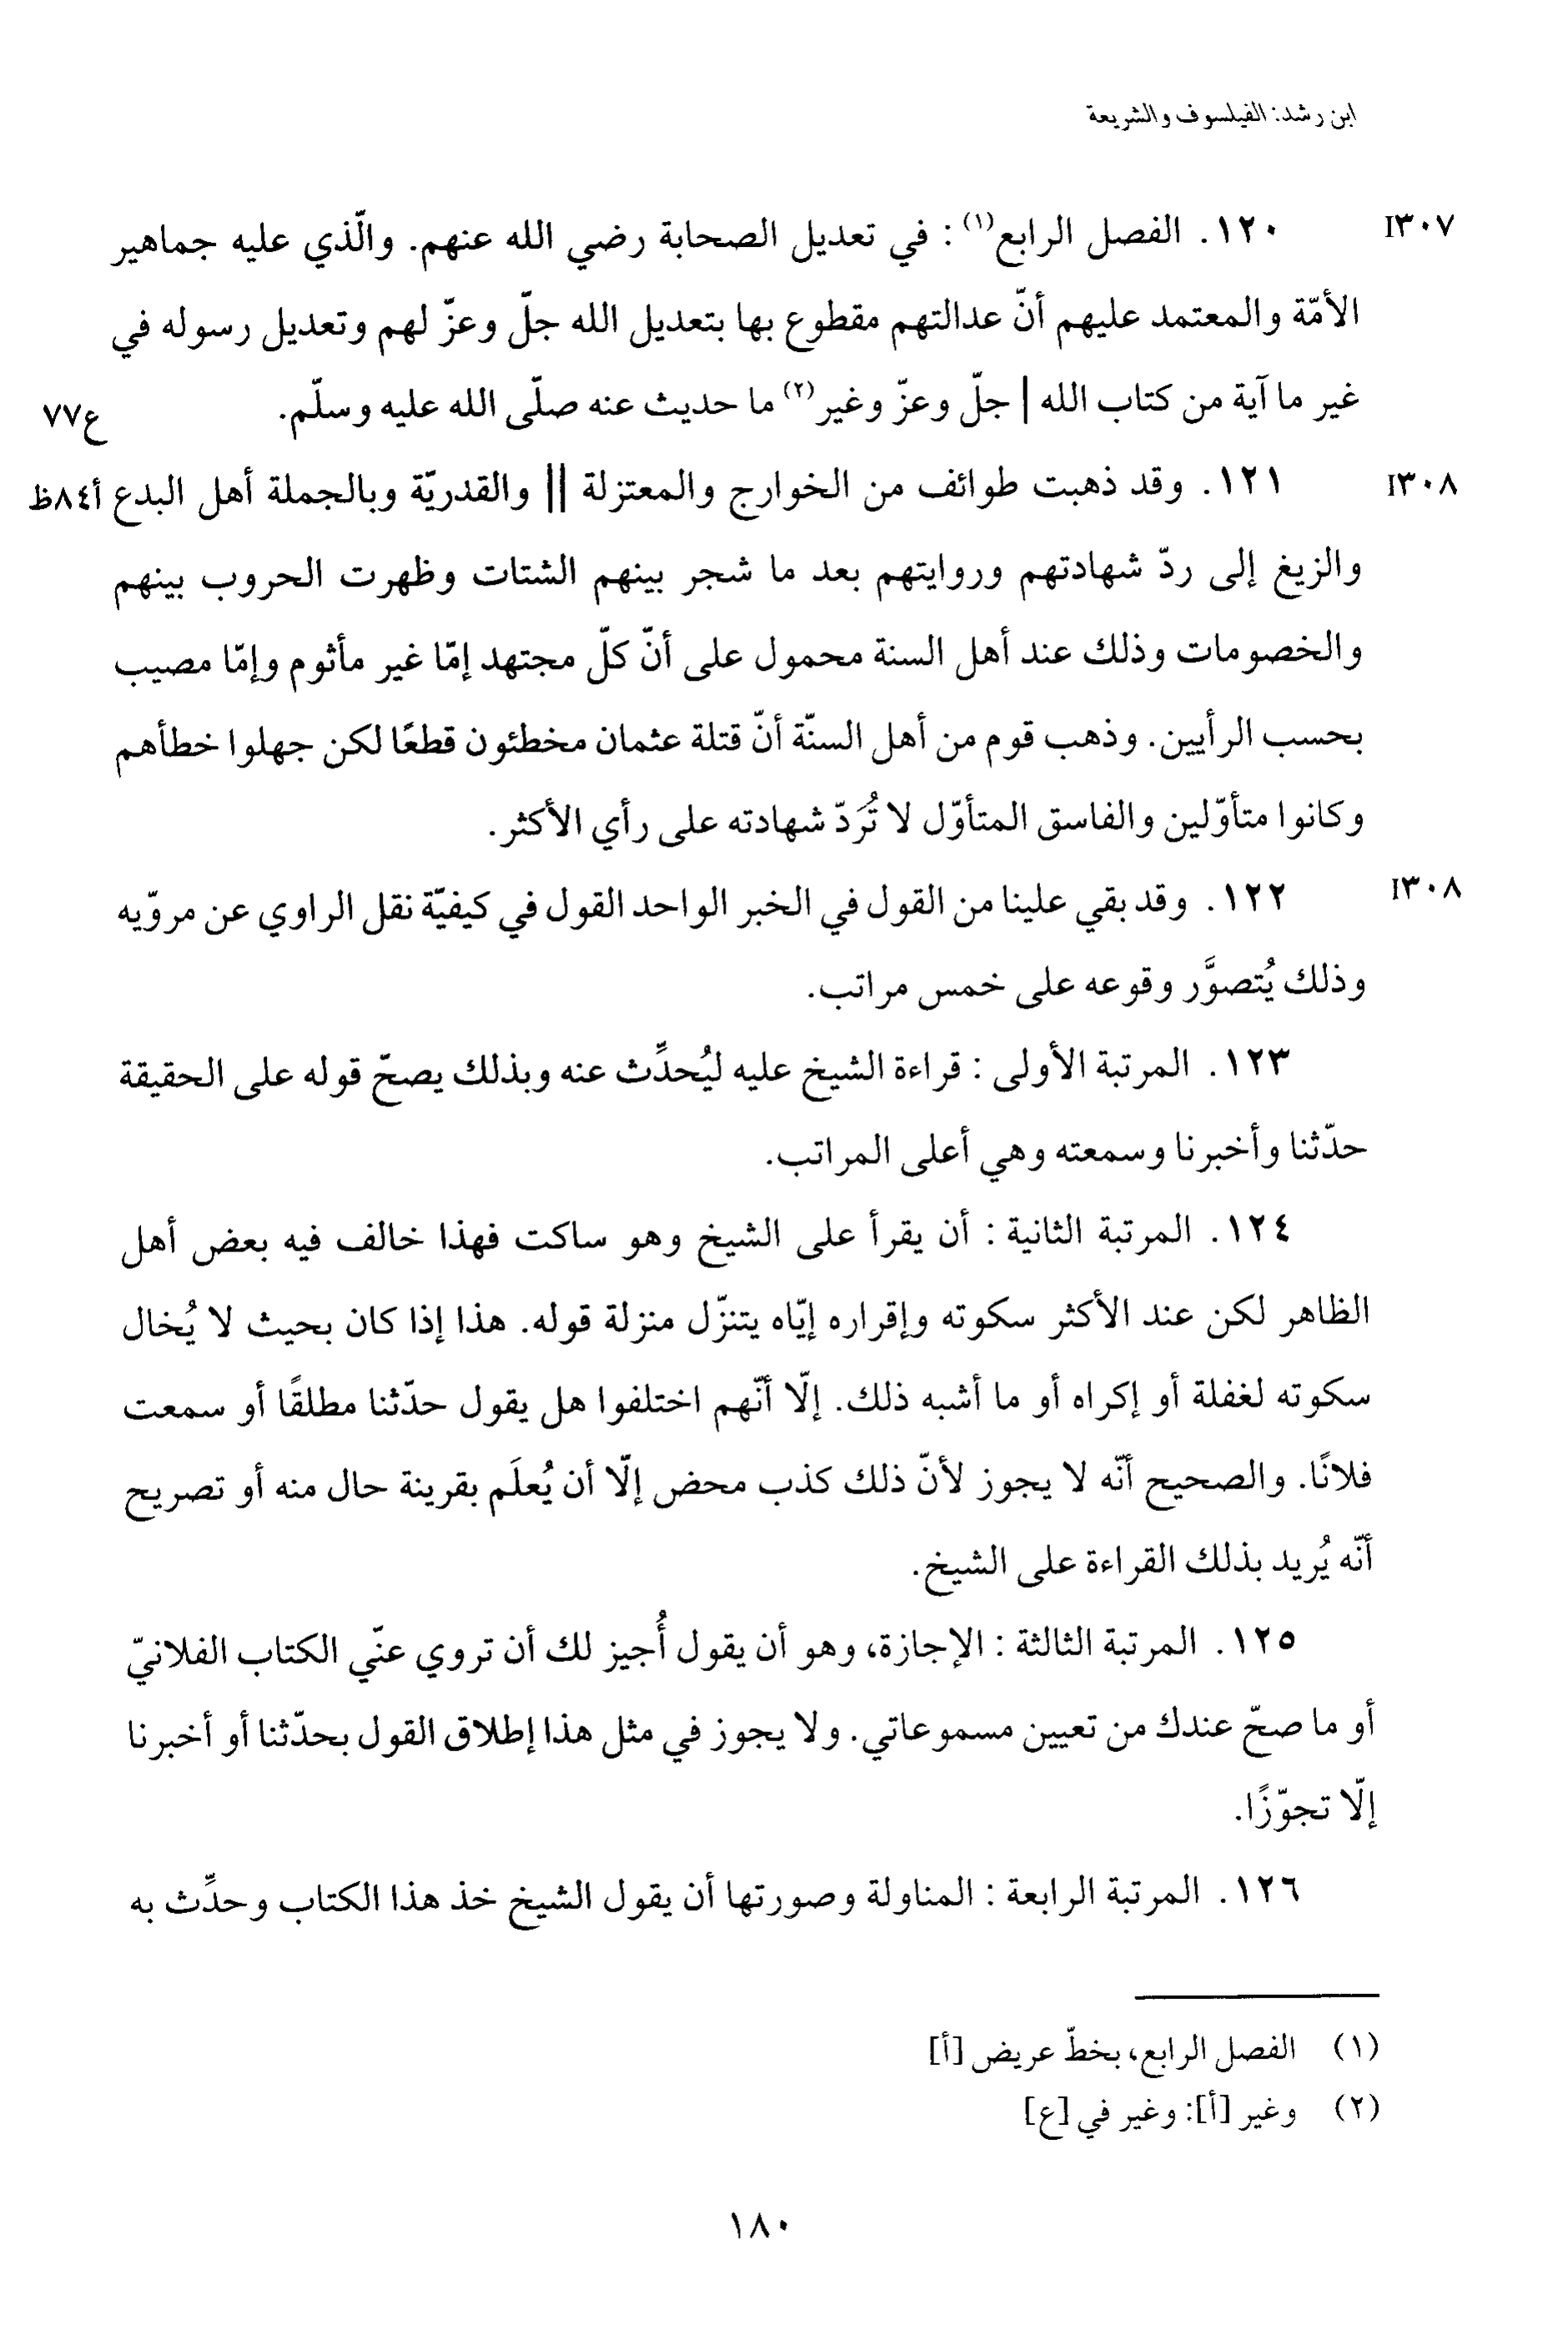 ابن رشد: الفيلسوف والشريعة
I٣٠٧ ١٢٠. الفصل الرابع(١) : في تعديل الصحابة رضي الله عنهم. والّذي عليه جماهير
الأمّة والمعتمد عليهم أنّ عدالتهم مقطوع بها بتعديل الله جلّ وعزّ لهم وتعديل رسوله في
غير ما آية من كتاب الله | جلّ وعزّ وغير(٢) ما حديث عنه صلّى الله عليه وسلّم. ع٧٧
I٣٠٨ ١٢١. وقد ذهبت طوائف من الخوارج والمعتزلة || والقدريّة وبالجملة أهل البدع أ٨٤ظ
والزيغ إلى ردّ شهادتهم وروايتهم بعد ما شجر بينهم الشتات وظهرت الحروب بينهم
والخصومات وذلك عند أهل السنة محمول على أنّ كلّ مجتهد إمّا غير مأثوم وإمّا مصيب
بحسب الرأيين. وذهب قوم من أهل السنّة أنّ قتلة عثمان مخطئون قطعًا لكن جهلوا خطأهم
وكانوا متأوّلين والفاسق المتأوّل لا تُرَدّ شهادته على رأي الأكثر.
I٣٠٨ ١٢٢. وقد بقي علينا من القول في الخبر الواحد القول في كيفيّة نقل الراوي عن مروّيه
وذلك يُتصوَّر وقوعه على خمس مراتب.
١٢٣. المرتبة الأولى : قراءة الشيخ عليه ليُحدِّث عنه وبذلك يصحّ قوله على الحقيقة
حدّثنا وأخبرنا وسمعته وهي أعلى المراتب.
١٢٤. المرتبة الثانية : أن يقرأ على الشيخ وهو ساكت فهذا خالف فيه بعض أهل
الظاهر لكن عند الأكثر سكوته وإقراره إيّاه يتنزّل منزلة قوله. هذا إذا كان بحيث لا يُخال
سكوته لغفلة أو إكراه أو ما أشبه ذلك. إلّا أنّهم اختلفوا هل يقول حدّثنا مطلقًا أو سمعت
فلانًا. والصحيح أنّه لا يجوز لأنّ ذلك كذب محض إلّا أن يُعلَم بقرينة حال منه أو تصريح
أنّه يُريد بذلك القراءة على الشيخ.
١٢٥. المرتبة الثالثة : الإجازة، وهو أن يقول أُجيز لك أن تروي عنّي الكتاب الفلانيّ
أو ما صحّ عندك من تعيين مسموعاتي. ولا يجوز في مثل هذا إطلاق القول بحدّثنا أو أخبرنا
إلّا تجوّزًا.
١٢٦. المرتبة الرابعة : المناولة وصورتها أن يقول الشيخ خذ هذا الكتاب وحدِّث به
(١) الفصل الرابع، بخطّ عريض [أ]
(٢) وغير [أ]: وغير في [ع]
١٨٠